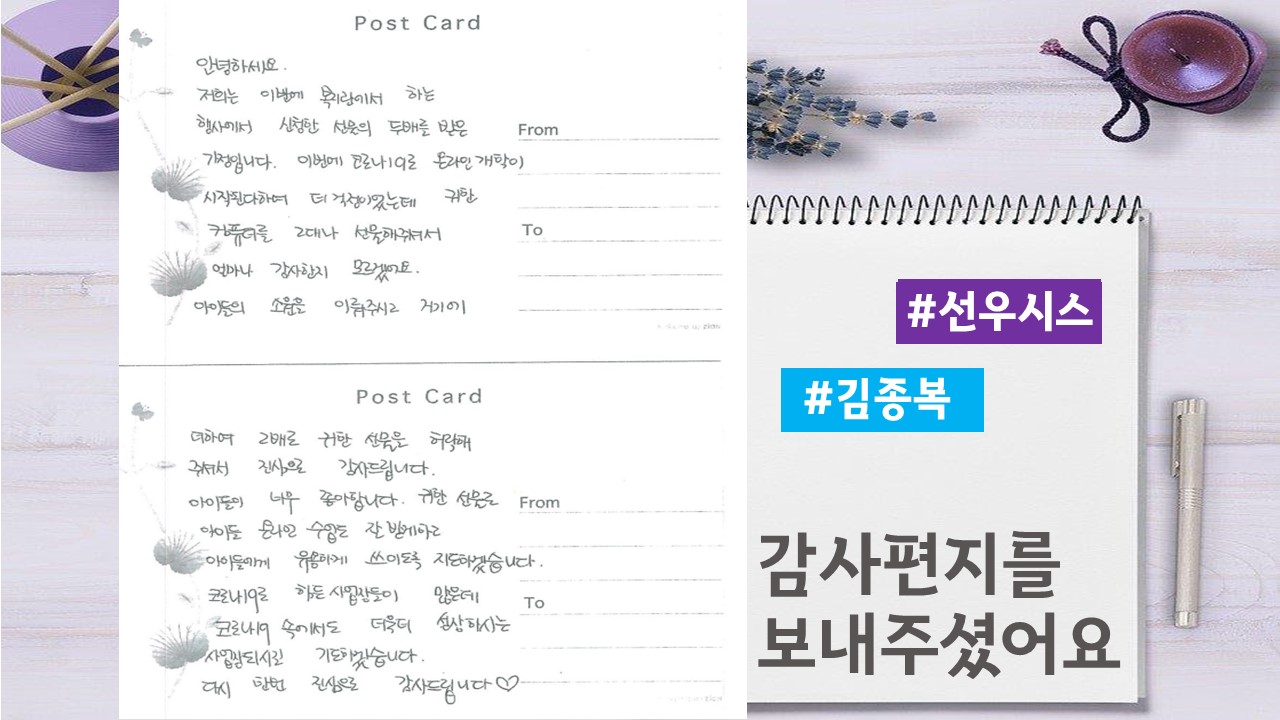 Post Card
안녕하세요.
저희는 이번에 복지관에서 하는
행사에서 신청한 선물의 두배를 받은
가정입니다. 이번에 코로나19로 온라인 개학이
시작된다하여 더 걱정이었는데 귀한
컴퓨터를 2대나 선물해주셔서
얼마나 감사한지 모르겠어요.
아이들의 소원을 이뤄주시고 거기에
From
To
Post Card
더하여 2배로 귀한 선물을 허락해
주셔서 진심으로 감사드립니다.
아이들이 너무 좋아합니다. 귀한 선물로
아이들 온라인 수업도 잘 받게하고
아이들에게 유용하게 쓰이도록 지도하겠습니다.
코로나19로 하든 사업장들이 많은데
코로나19 속에서도 더욱더 성장하시는
사업장되시길 기도하겠습니다.
다시 한번 진심으로 감사드립니다♡
From
To
#선우시스
#김종복
감사편지를
보내주셨어요